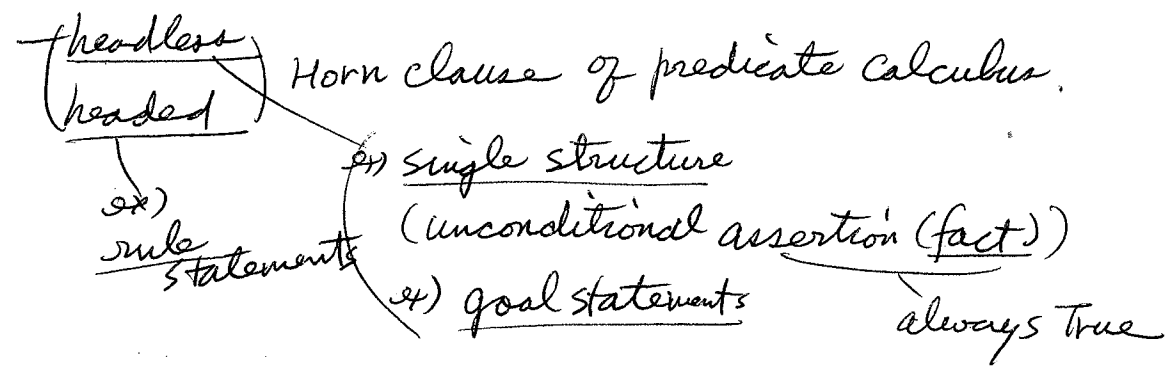 headless
headed
Horn clause of predicate calculus.
ex) single structure
(unconditional assertion (fact))
always True
ex) goal statements
ex)
rule statements